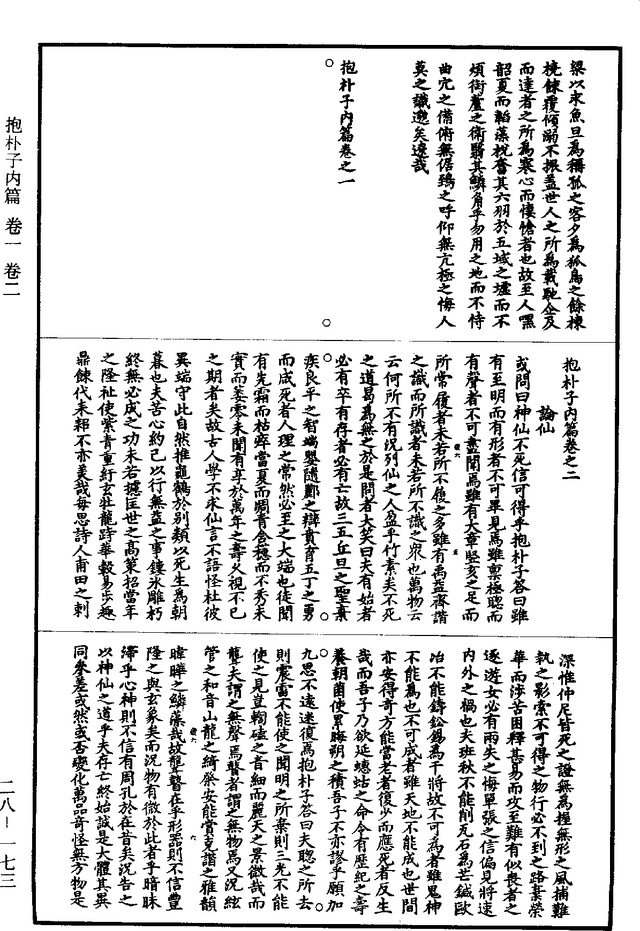 梁以求魚旦為稱孤之客夕為狐鳥之餘棟
撓餗覆傾溺不振蓋世人之所為載馳企及
而達者之所為寒心而悽愴者也故至人嘿
韶夏而韜藻梲奮其六羽於五城之墟而不
煩銜蘆之衛翳其鱗角乎勿用之地而不恃
曲穴之備俯無倨鵄之呼仰無亢極之悔人
莫之識邈矣遼哉
抱朴子內篇卷之一
抱朴子內篇卷之二
論仙
或問曰神仙不死信可得乎抱朴子答曰雖
有至明而有形者不可畢見焉雖稟極聰而
有聲者不可盡聞焉雖有大章豎亥之足而
所常履者未若所不履之多雖有禹益齊諧
之識而所識者未若所不識之眾也萬物云
云何所不有況列仙之人盈乎竹素矣不死
之道曷為無之於是問者大笑曰夫有始者
必有卒有存者必有亡故三五丘旦之聖棄
疾良平之智端嬰隨酈之辯賁育五丁之勇
而咸死者人理之常然必至之大端也徒聞
有先霜而枯瘁當夏而凋青含穗而不秀未
實而萎零未聞有享於萬年之壽久視不已
之期者矣故古人學不求仙言不語怪杜彼
異端守此自然推龜鶴於別類以死生為朝
暮也夫苦心約己以行無益之事鏤冰雕朽
終無必成之功未若攄匡世之高策招當年
之隆祉使紫青重紆玄牡龍跱華轂易步趍
鼎餗代耒耜不亦美哉每思詩人甫田之刺
深惟仲尼皆死之證無為握無形之風捕難
執之影索不可得之物行必不到之路棄榮
華而涉苦困釋其易而攻至難有似喪者之
逐遊女必有兩失之悔單張之信偏見將速
內外之禍也夫班秋不能削瓦石為芒鍼歐
冶不能鑄鉛錫為干將故不可為者雖鬼神
不能為也不可成者雖天地不能成也世間
亦安得奇方能當老者復少而應死者反生
哉而吾子乃欲延蟪蛄之命令有歷紀之壽
養朝菌使累晦朔之積吾子不亦謬乎願加
九思不遠迷復焉抱朴子答曰夫聰之所去
則震雷不能使之聞明之所棄則三光不能
使之見豈輷磕之音細而麗天之景微哉而
聾夫謂之無聲焉瞽者謂之無物焉又況絃
管之和音山龍之綺粲安能賞克諧之雅韻
暐曄之鱗藻哉故聾瞽在乎形器則不信豐
隆之與玄象矣而況物有微於此者乎暗昧
滯乎心神則不信有周孔於在昔矣況告之
以神仙之道乎夫存亡終始誠是大體其異
同參差或然或否變化萬品奇怪無方物是
抱朴子內篇 卷一 卷二
二八－一七三